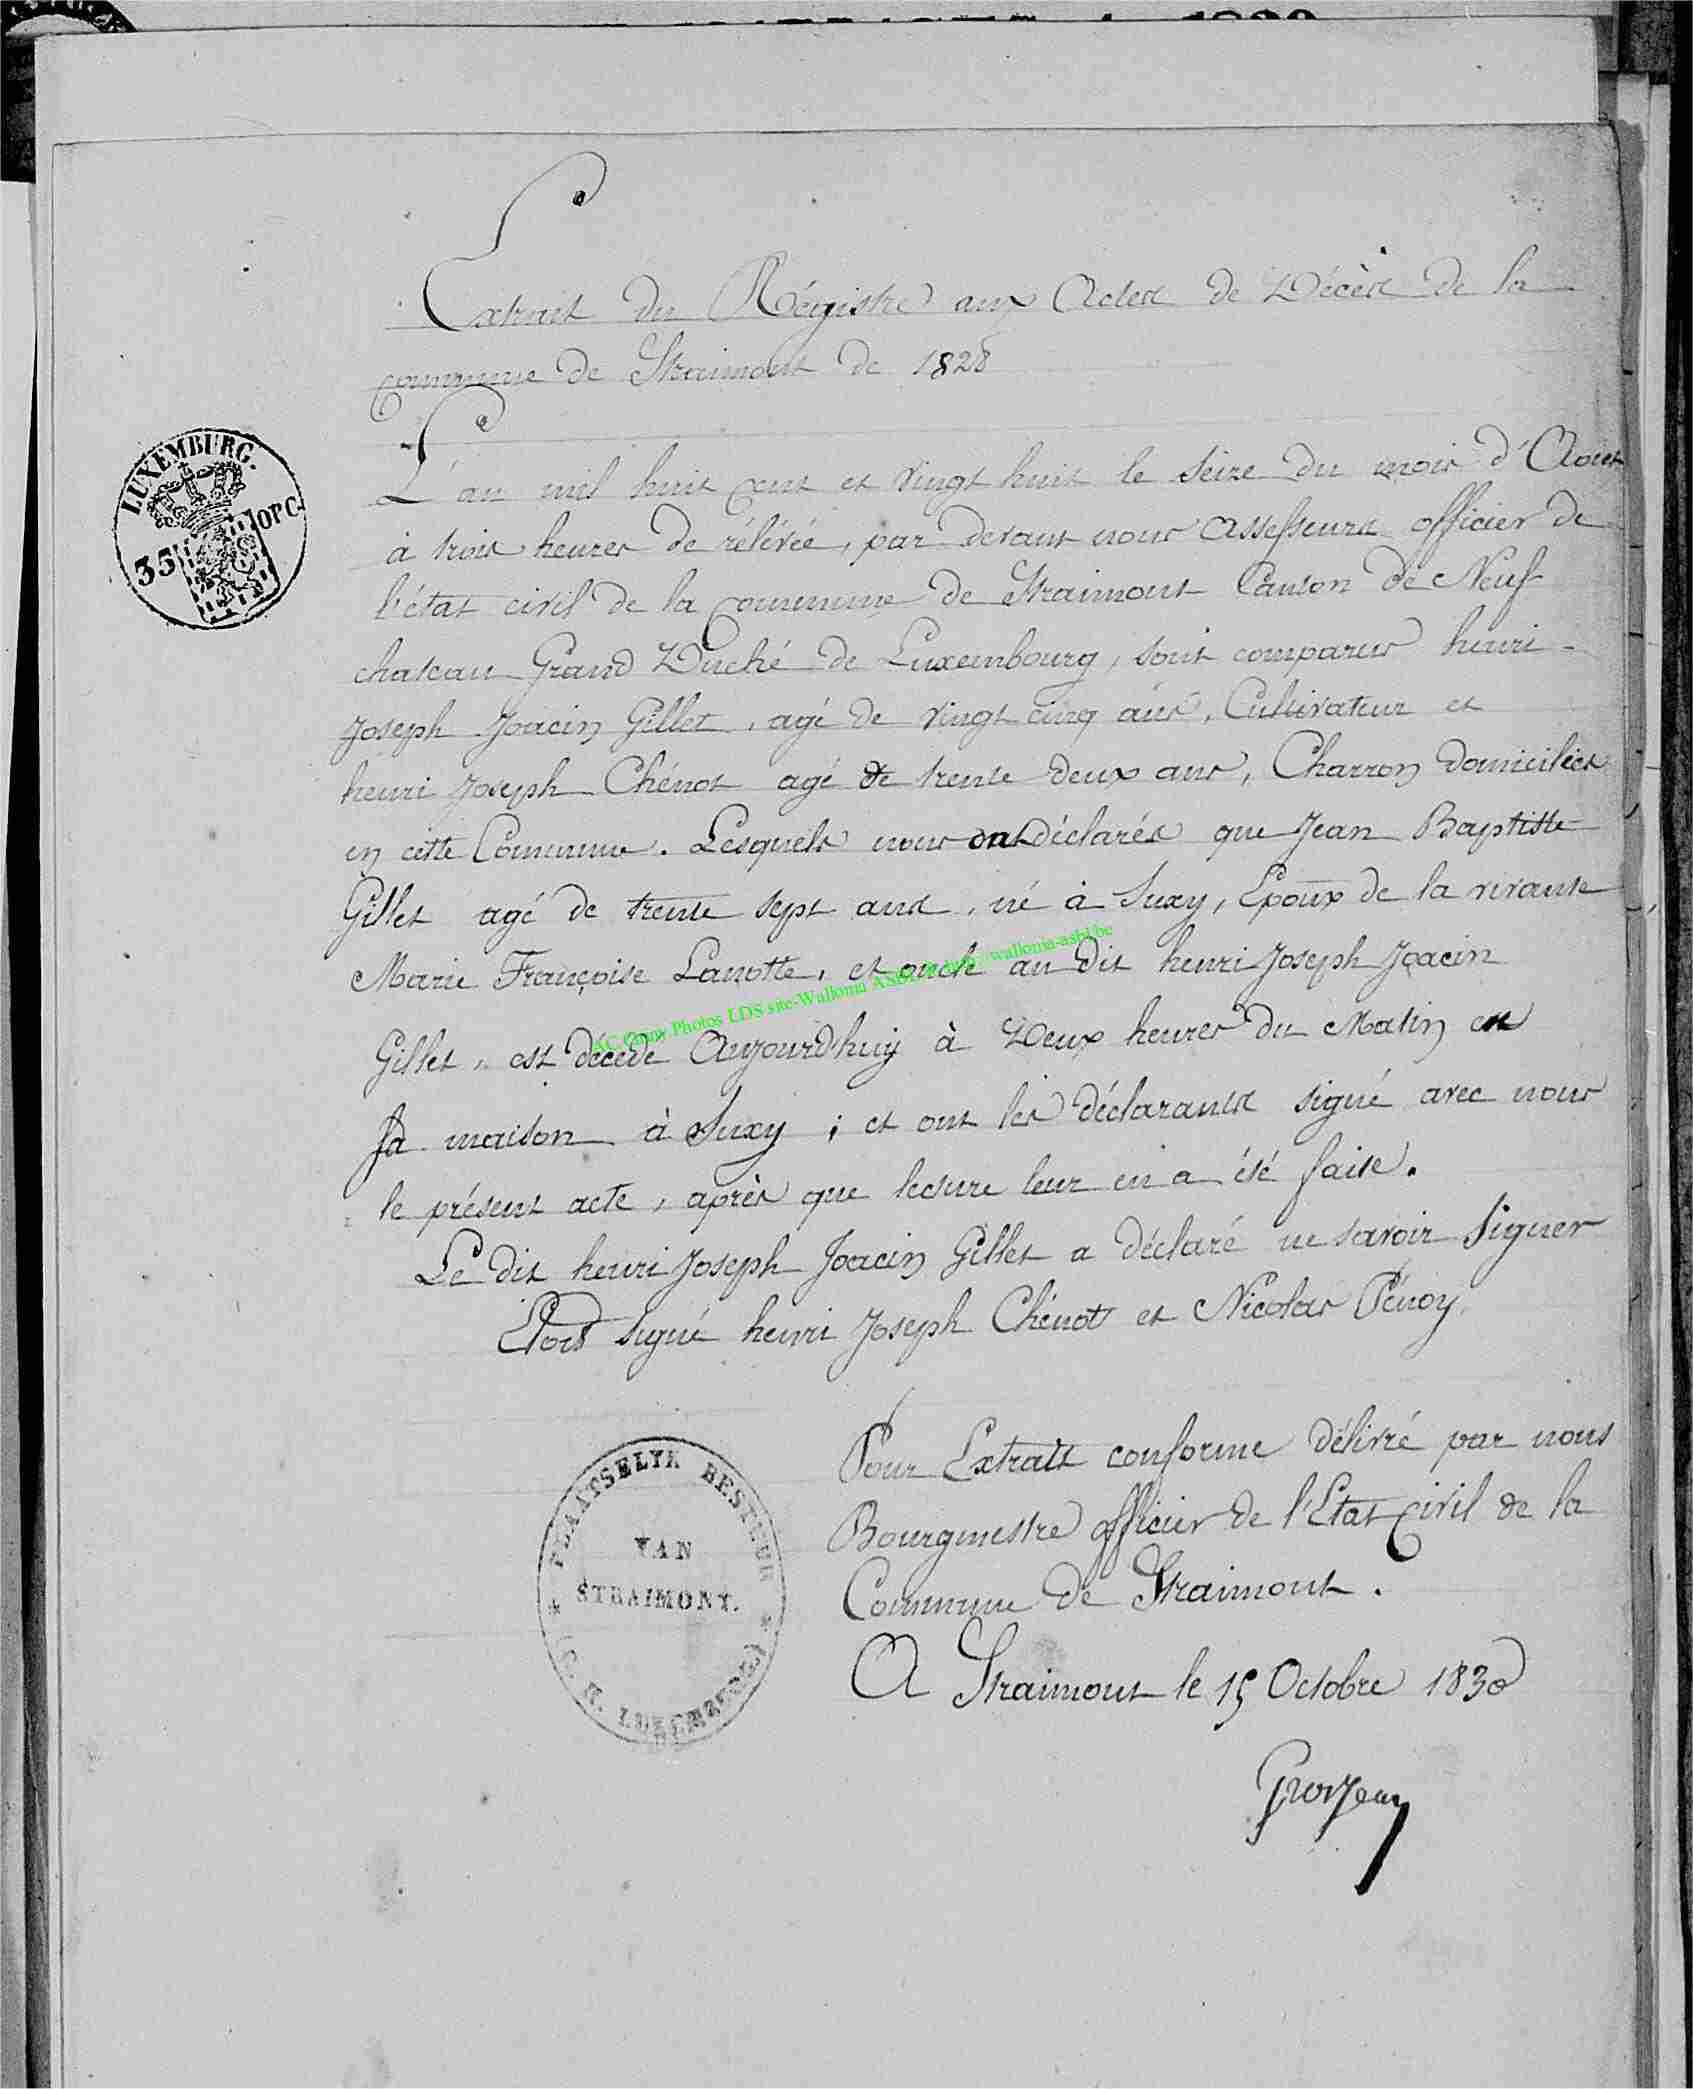 Extrait du Régistre aux Actes de Décès de la
commune de Straimont de 1828
L'an mil huit cent et vingt huit le seize du mois d'Aout
à trois heures de rélévée, par devant nous Assesseurs officier de
l'état civil de la commune de Straimont Canton de Neuf
chateau Grand Duché de Luxembourg, sont comparus henri
Joseph Joacin Gillet, agé de vingt cinq ans, Cultivateur et
henri Joseph Chénot agé de trente deux ans, Charron domiciliés
en cette Commune. Lesquels nous ont déclarés que Jean Baptiste
Gillet agé de trente sept ans, né à Suxy, Epoux de la vivante
Marie Françoise Lanotte, et oncle au dit henri Joseph Joacin
AC Cugny Photos LDS site-Wallonia ASBL wallonia-asbl.be
Gillet, est décédé Aujourd'huy à Deux heures du Matin en
sa maison à Suxy ; et ont les déclarants signé avec nous
le présent acte, après que lecture leur en a été faite.
Le dit henri Joseph Joacin Gillet a déclaré ne savoir signer
signé henri Joseph Chénot et Nicolas Pénoy
Pour Extrait conforme délivré par nous
Bourgmestre officier de l'Etat Civil de la
Commune de Straimont.
A Straimont le 15 Octobre 1830
Grosjean
LUXEMBURG.
35 OPC.
PLAATSELYK BESTUUR
VAN
STRAIMONT.